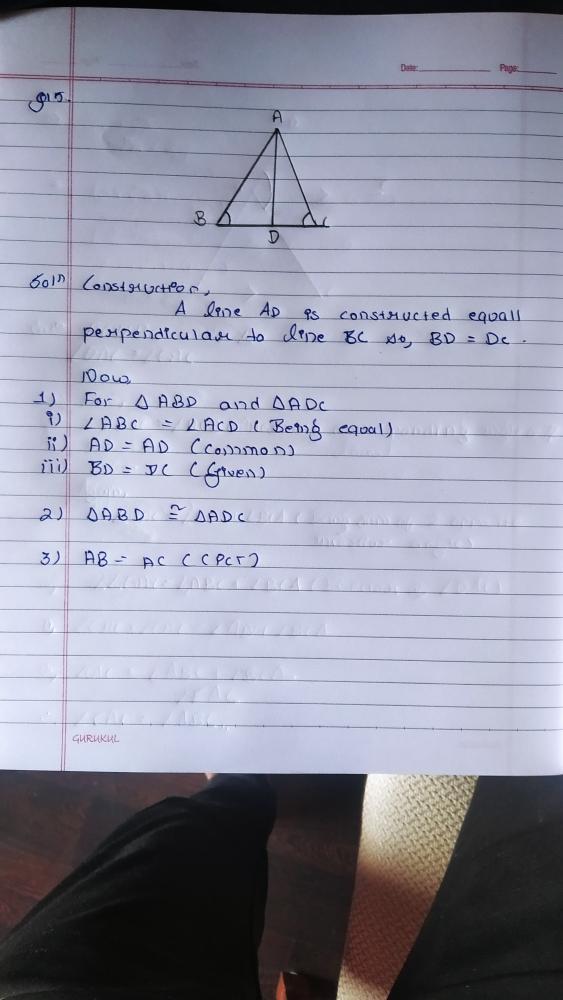 Date: Page:
Q15.
A
B C
D
Solⁿ Construction,
A line AD is constructed equall
perpendicular to line BC so, BD = DC.
Now,
1) For △ABD and △ADC
i) ∠ABC = ∠ACD (Being equal)
ii) AD = AD (common)
iii) BD = DC (Given)
2) △ABD ≅ △ADC
3) AB = AC (CPCT)
GURUKUL